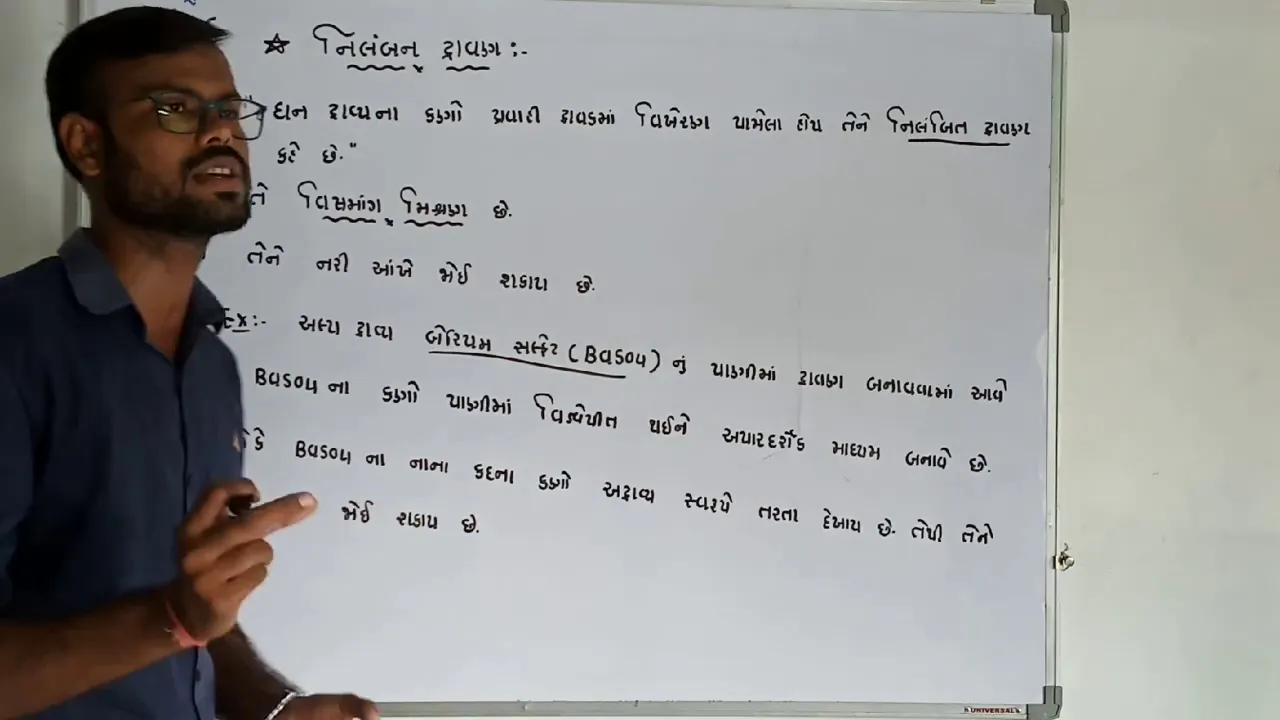 ☆ નિલંબન દ્રાવણ :-
" ઘન દ્રાવ્યના કણો પ્રવાહી દ્રાવકમાં વિખેરણ પામેલા હોય તેને નિલંબિત દ્રાવણ
કહે છે."
તે વિષમાંગ મિશ્રણ છે.
તેને નરી આંખે જોઈ શકાય છે.
Ex:- અલ્પ દ્રાવ્ય બેરિયમ સલ્ફેટ (BaSO4) નું પાણીમાં દ્રાવણ બનાવવામાં આવે
BaSO4 ના કણો પાણીમાં વિક્ષેપીત થઈને અપારદર્શક માધ્યમ બનાવે છે.
કે BaSO4 ના નાના કદના કણો અદ્રાવ્ય સ્વરૂપે તરતા દેખાય છે. તેથી તેને
જોઈ શકાય છે.
UNIVERSAL